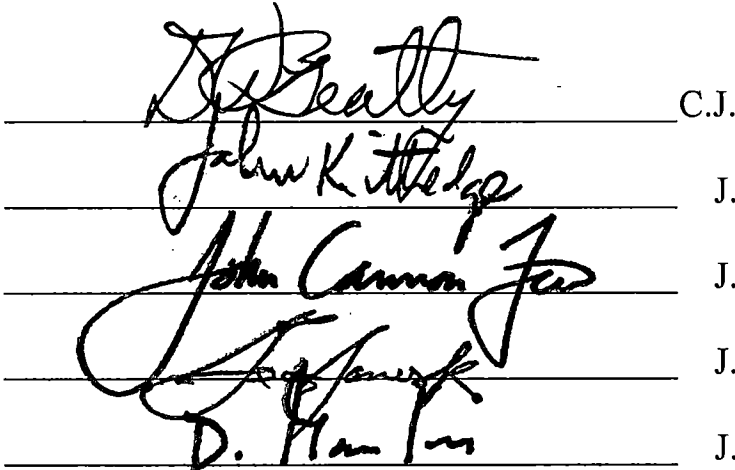 D Beatty C.J.
John Kittredge J.
John Cannon Few J.
J.
D. J.